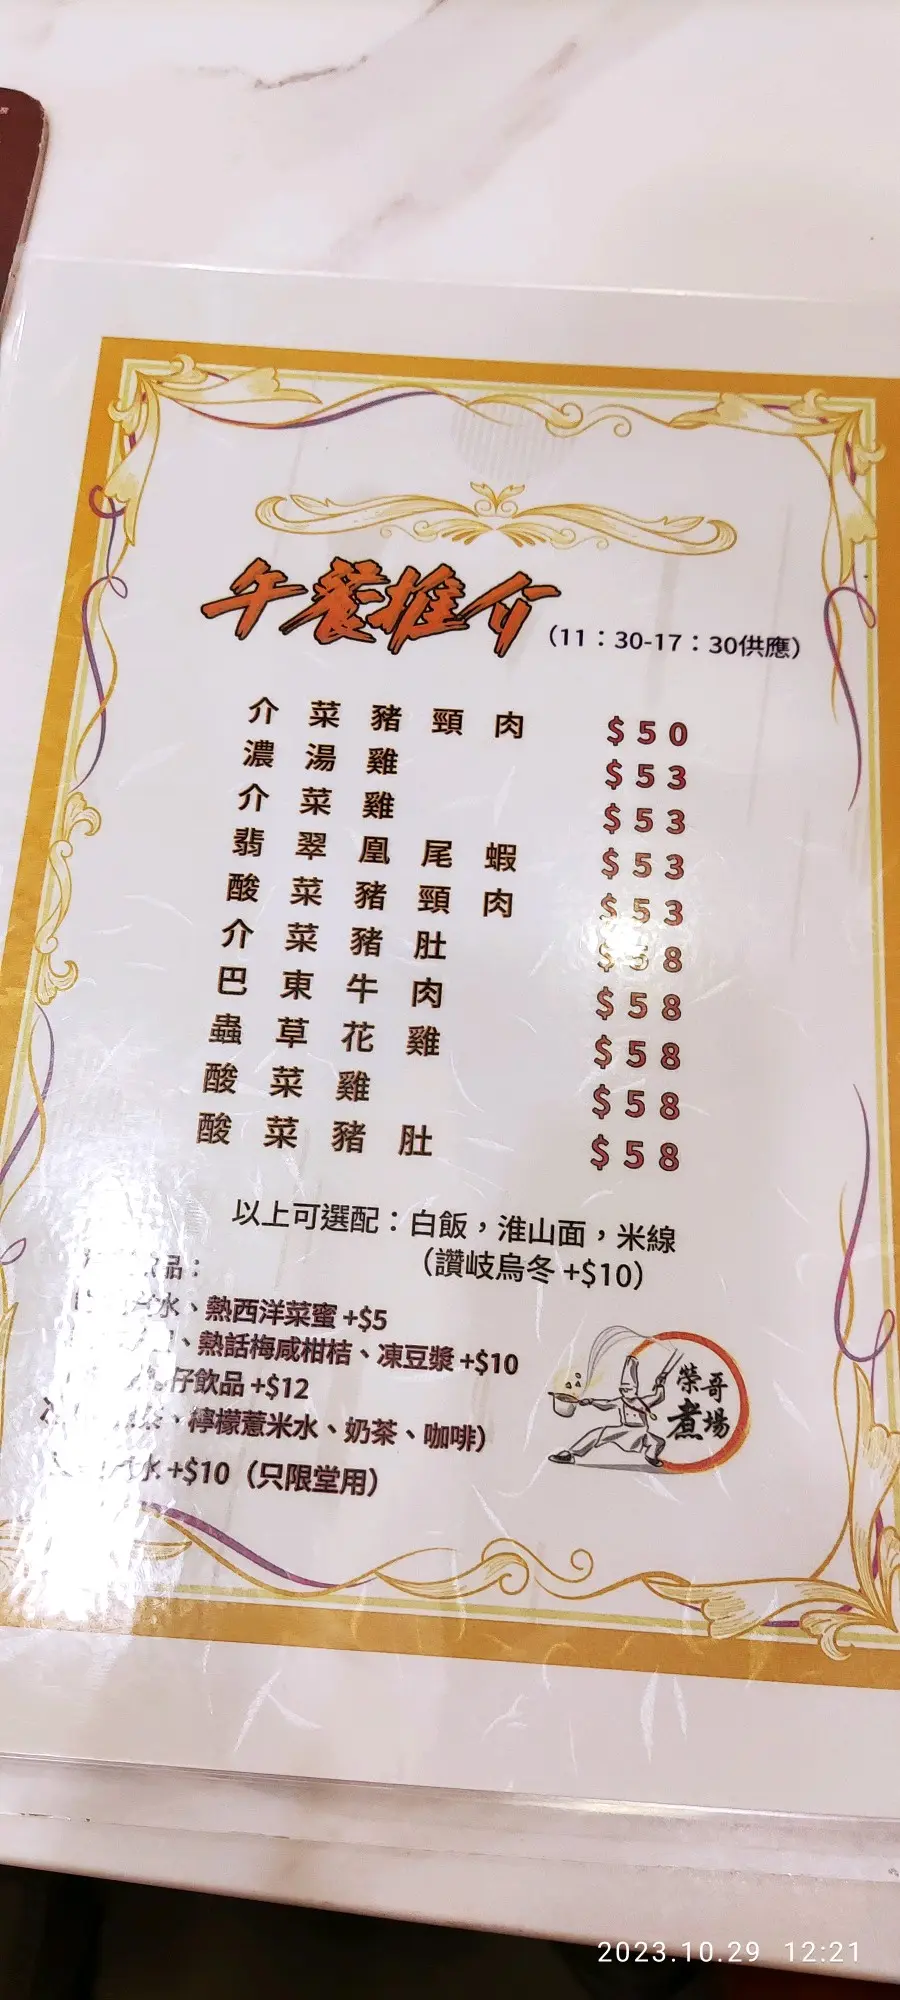 午餐推介
（11：30-17：30供應）
介菜豬頸肉 $50
濃湯雞 $53
介菜雞 $53
翡翠凰尾蝦 $53
酸菜豬頸肉 $53
介菜豬肚 $58
巴東牛肉 $58
蟲草花雞 $58
酸菜雞 $58
酸菜豬肚 $58
以上可選配：白飯，淮山面，米線
（讚岐烏冬 +$10）
品：
水、熱西洋菜蜜 +$5
、熱話梅咸柑桔、凍豆漿 +$10
仔飲品 +$12
茶、檸檬薏米水、奶茶、咖啡）
水 +$10（只限堂用）
榮哥
煮場
2023.10.29 12:21